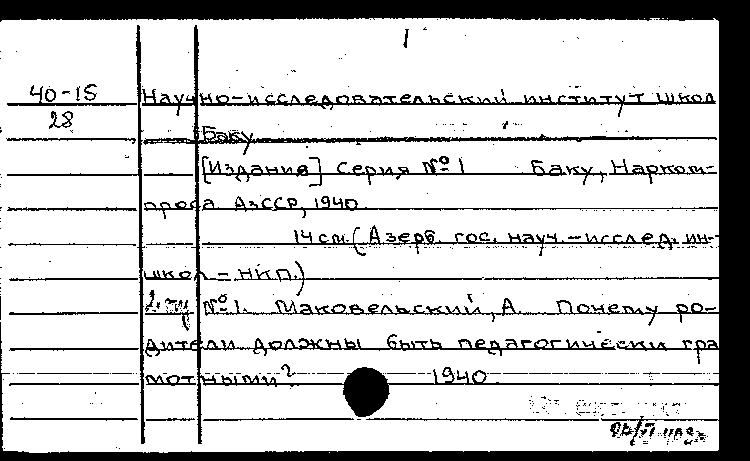 1
40-15 Научно-исследовательский институт школ
28
Баку
[Издания] Серия №1 Баку, Нарком-
проса АзССР, 1940.
14 см. (Азерб. гос. науч.-исслед. ин-
школ - НКП.)
№1. Маковельский, А. Почему ро-
дители должны быть педагогически гра
мотными? 1940.